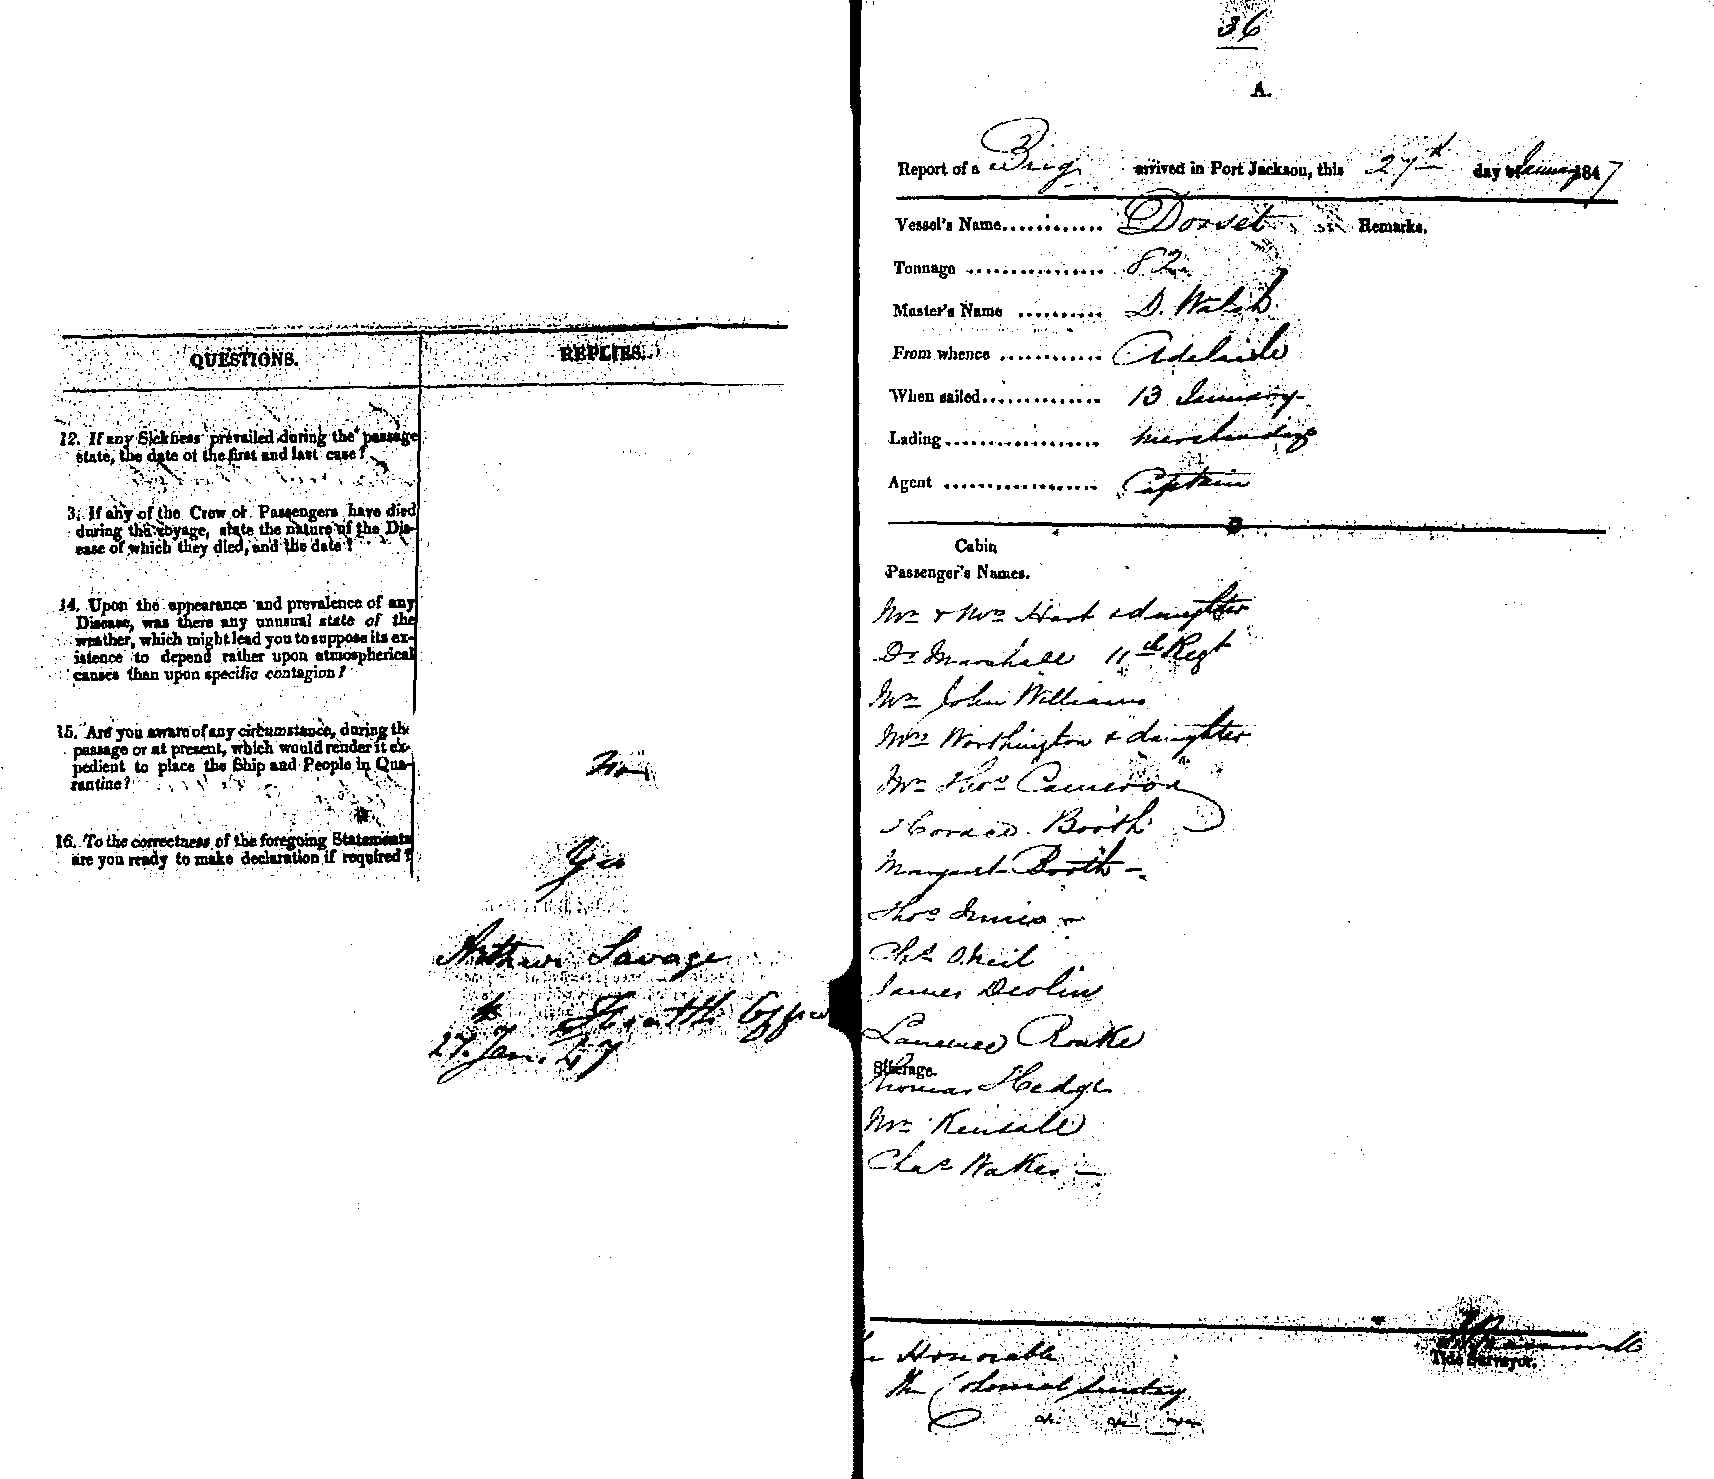 QUESTIONS.
REPLIES.
12. If any Sickness prevailed during the passage
state, the date of the first and last case?
3. If any of the Crew or Passengers have died
during the voyage, state the nature of the Dis-
ease of which they died, and the date?
14. Upon the appearance and prevalence of any
Disease, was there any unusual state of the
weather, which might lead you to suppose its ex-
istence to depend rather upon atmospherical
causes than upon specific contagion?
15. Are you aware of any circumstance, during the
passage or at present, which would render it ex-
pedient to place the Ship and People in Qua-
rantine?
No
16. To the correctness of the foregoing Statements
are you ready to make declaration if required?
Yes
Arthur Savage
Health Officer
27. Jan. 47
36
A.
Report of a Brig arrived in Port Jackson, this 27th day of January 1847
Vessel's Name............ Dorset Remarks.
Tonnage ................ 82
Master's Name .......... D. Walsh
From whence ............ Adelaide
When sailed.............. 13 January
Lading.................. merchandize
Agent .................. Captain
Cabin
Passenger's Names.
Mr & Mrs Hart & daughter
Dr Marshall 11th Regt
Mr John Williams
Mrs Worthington & daughter
Mr Thos Cameron
Horace Booth
Margaret Booth
Thos Innis
Chs O'Neil
James Devlin
Laurence Rourke
Steerage.
Thomas Hedge
Mr Kensall
Chas Wakes
Honorable
The Colonial Secretary
Tide Surveyor.